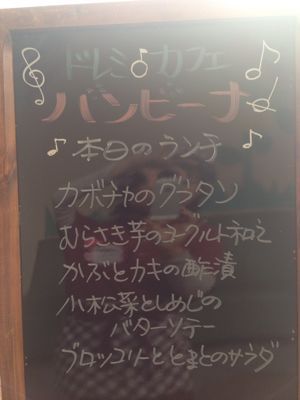 ドレミ♪カフェ
バンビーナ
♪本日のランチ
カボチャのグラタン
むらさき芋のヨーグルト和え
かぶとカキの酢漬
小松菜としめじの
バターソテー
ブロッコリーととまとのサラダ